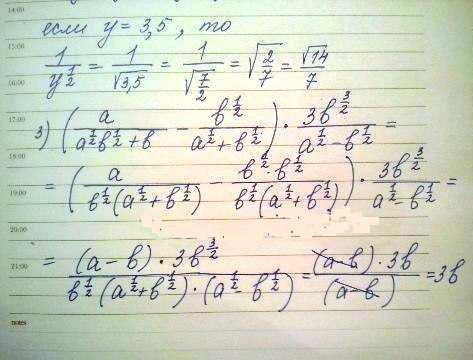 14:00
если y = 3,5 , то
15:00
1/y^(1/2) = 1/√3,5 = 1/√(7/2) = √(2/7) = √14/7
16:00
17:00
3) (a/(a^(1/2)b^(1/2) + b) - b^(1/2)/(a^(1/2) + b^(1/2))) · 3b^(3/2)/(a^(1/2) - b^(1/2)) =
18:00
= (a/(b^(1/2)(a^(1/2) + b^(1/2))) - b^(1/2) · b^(1/2)/(b^(1/2)(a^(1/2) + b^(1/2)))) · 3b^(3/2)/(a^(1/2) - b^(1/2)) =
19:00
20:00
= (a - b) · 3b^(3/2)/(b^(1/2)(a^(1/2) + b^(1/2)) · (a^(1/2) - b^(1/2))) = (a - b) · 3b/(a - b) = 3b
21:00
notes